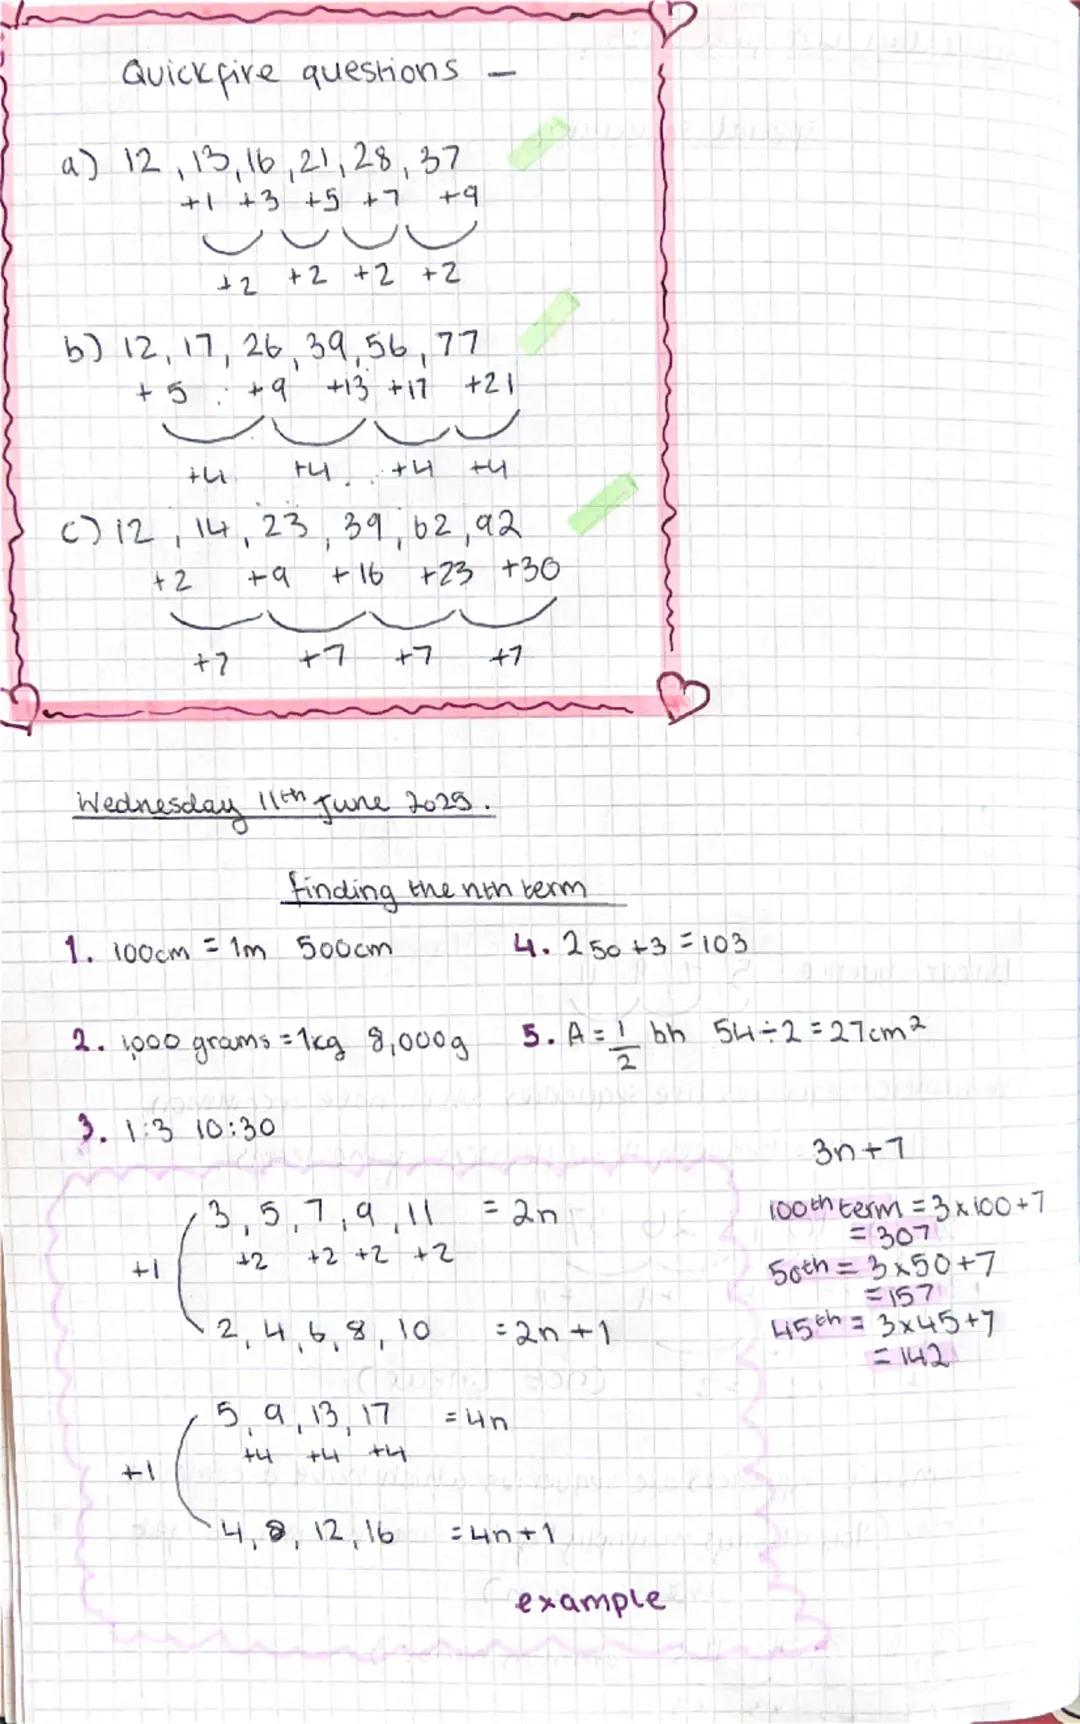 Quickfire questions -
a) 12, 13, 16, 21, 28, 37
+1 +3 +5 +7 +9
+2 +2 +2 +2
b) 12, 17, 26, 39, 56, 77
+5 +9 +13 +17 +21
+4 +4 +4 +4
c) 12, 14, 23, 39, 62, 92
+2 +9 +16 +23 +30
+7 +7 +7 +7
Wednesday 11th June 2025.
finding the nth term
1. 100cm = 1m 500cm
4. 250 + 3 = 103
2. 1,000 grams = 1kg 8,000g
5. A = 1/2 bh 54 ÷ 2 = 27cm²
3. 1:3 10:30
3, 5, 7, 9, 11 = 2n
+2 +2 +2 +2
+1
2, 4, 6, 8, 10 = 2n + 1
5, 9, 13, 17 = 4n
+4 +4 +4
+1
4, 8, 12, 16 = 4n + 1
example
3n + 7
100th term = 3 x 100 + 7
= 307
50th = 3 x 50 + 7
= 157
45th = 3 x 45 + 7
= 142